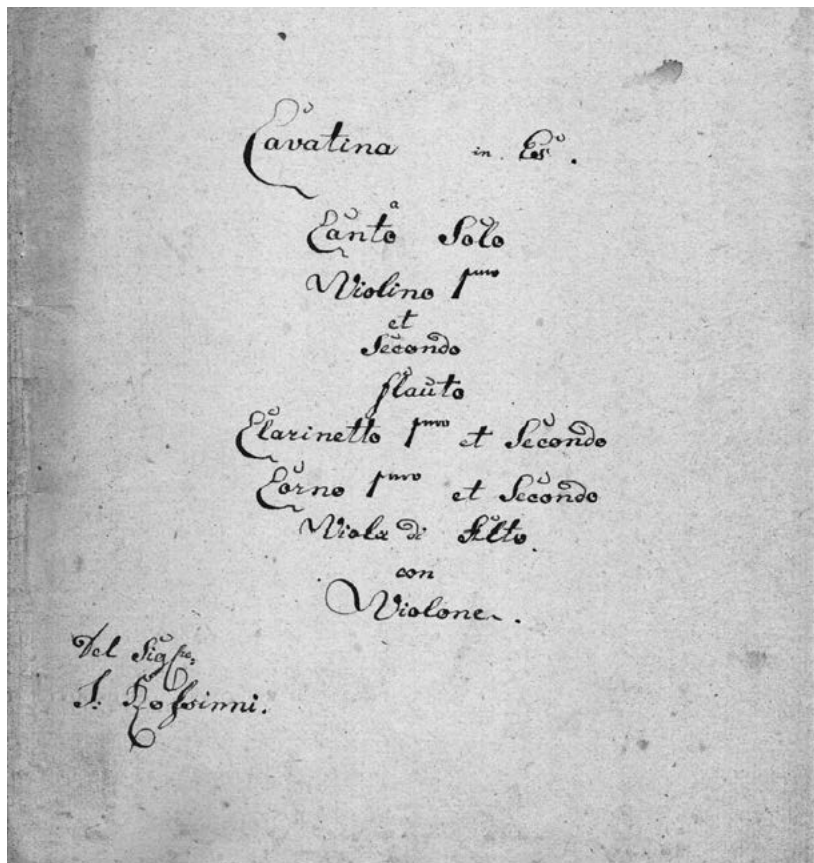 Cavatina in Es.
a
Canto Solo
Violino pmo
et
Secondo
flauto
Clarinetto pmo et Secondo
Corno pmo et Secondo
Viola di Alto.
con
Violone.
Del Sigre:
J: Rossinni.